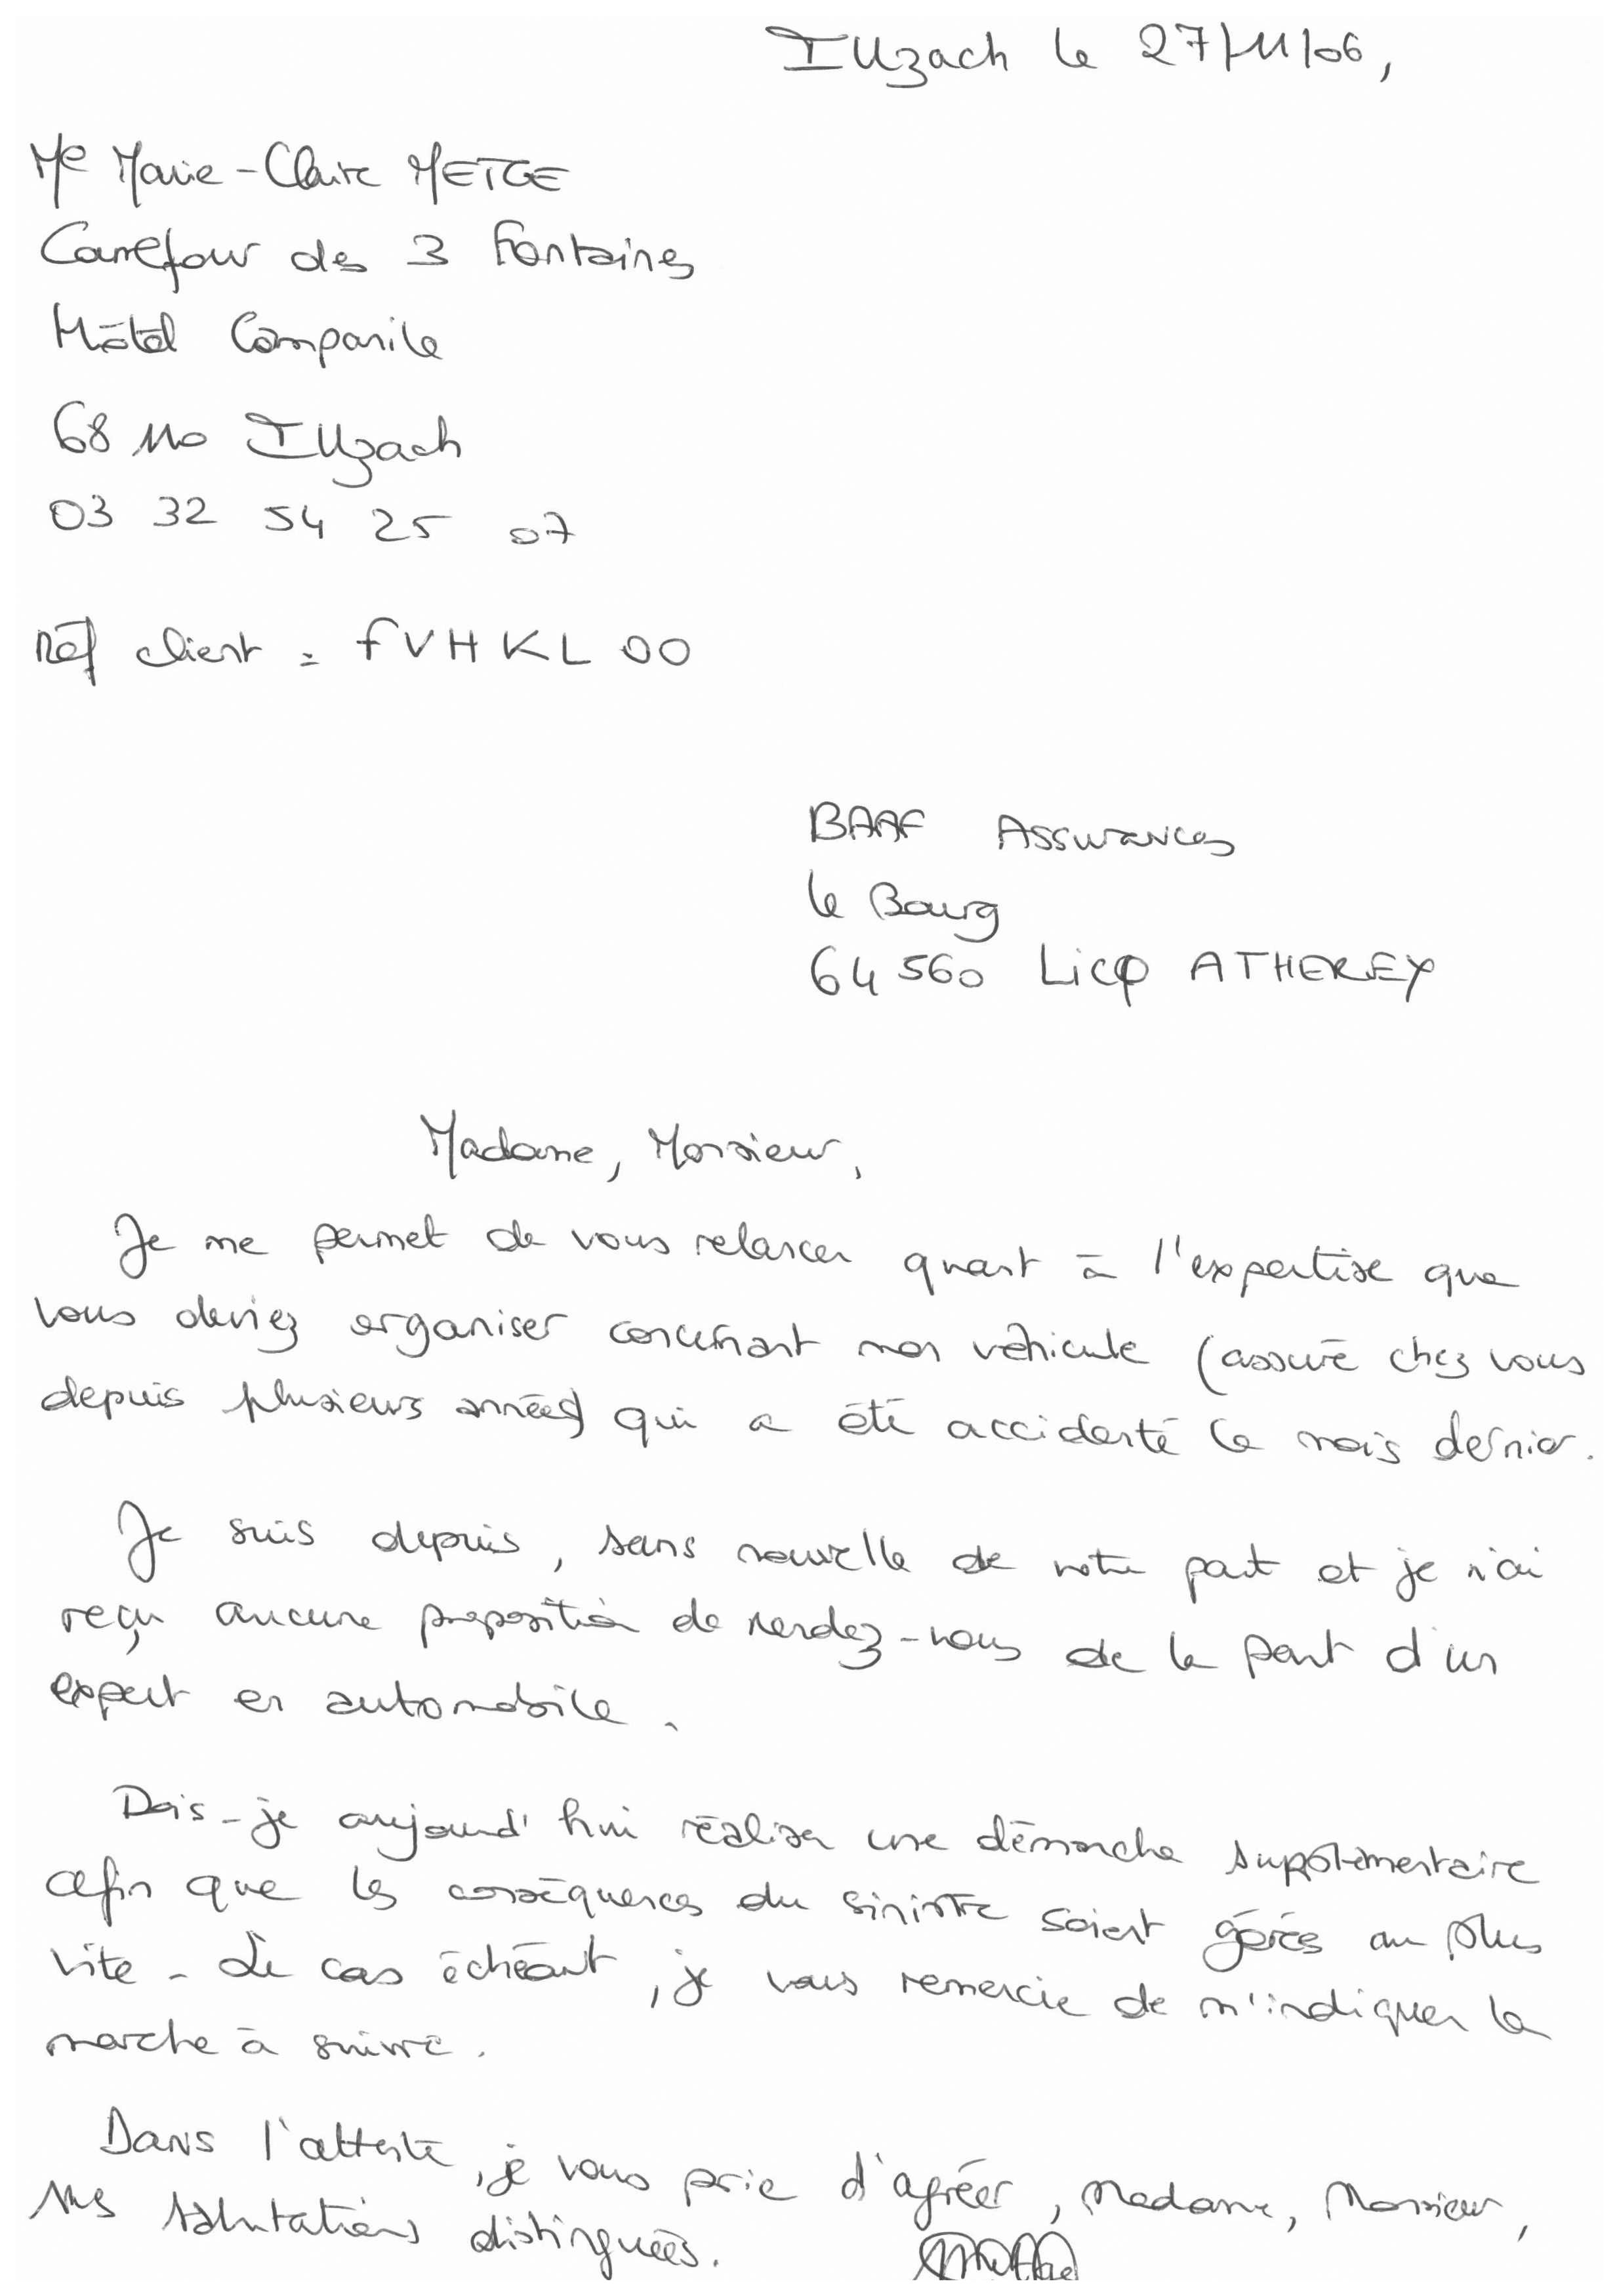 Illzach le 27/11/06,
Me Marie-Claire METGE
Carrefour des 3 Fontaines
Hôtel Companile
68110 Illzach
03 32 54 25 07
Réf client : FVHKL00
BAAF Assurances
le Bourg
64560 Licq ATHEREY
Madame, Monsieur,
Je me permet de vous relancer quant à l'expertise que
vous deviez organiser concernant mon véhicule (assuré chez vous
depuis plusieurs années) qui a été accidenté le mois dernier.
Je suis depuis, sans nouvelle de votre part et je n'ai
reçu aucune proposition de rendez-vous de la part d'un
expert en automobile.
Dois-je aujourd'hui réaliser une démarche supplémentaire
afin que les conséquences du sinistre soient gérés au plus
vite. Le cas échéant, je vous remercie de m'indiquer la
marche à suivre.
Dans l'attente, je vous prie d'agréer, Madame, Monsieur,
mes salutations distinguées.